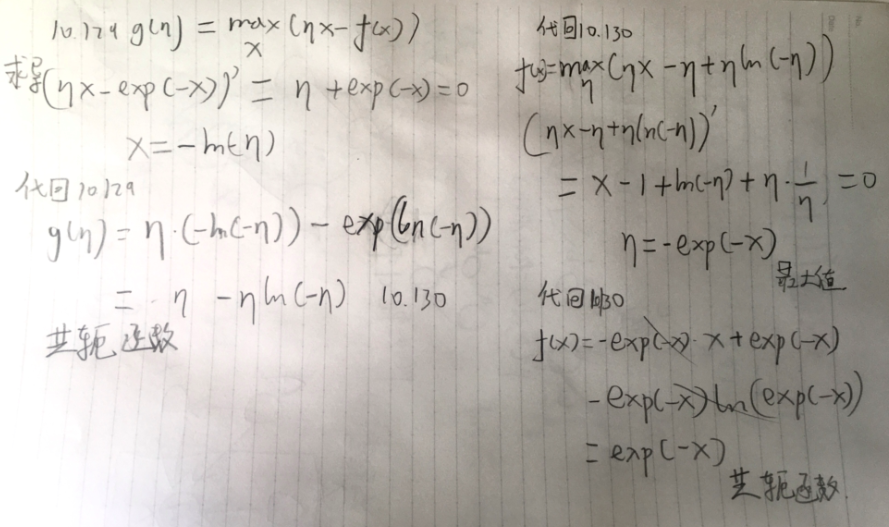 10.129 g(η) = max_x (ηx-f(x))
求导(ηx-exp(-x))' = η+exp(-x)=0
x=-ln(-η)
代回10.129
g(η) = η·(-ln(-η)) - exp(ln(-η))
= η -ηln(-η) 10.130
共轭函数
代回10.130
f(x)=max_η(ηx-η+ηln(-η))
(ηx-η+ηln(-η))'
= x-1+ln(-η)+η·1/η =0
η=-exp(-x)
最大值
代回10.130
f(x)=-exp(-x)·x+exp(-x)
-exp(-x)ln(exp(-x))
=exp(-x)
共轭函数